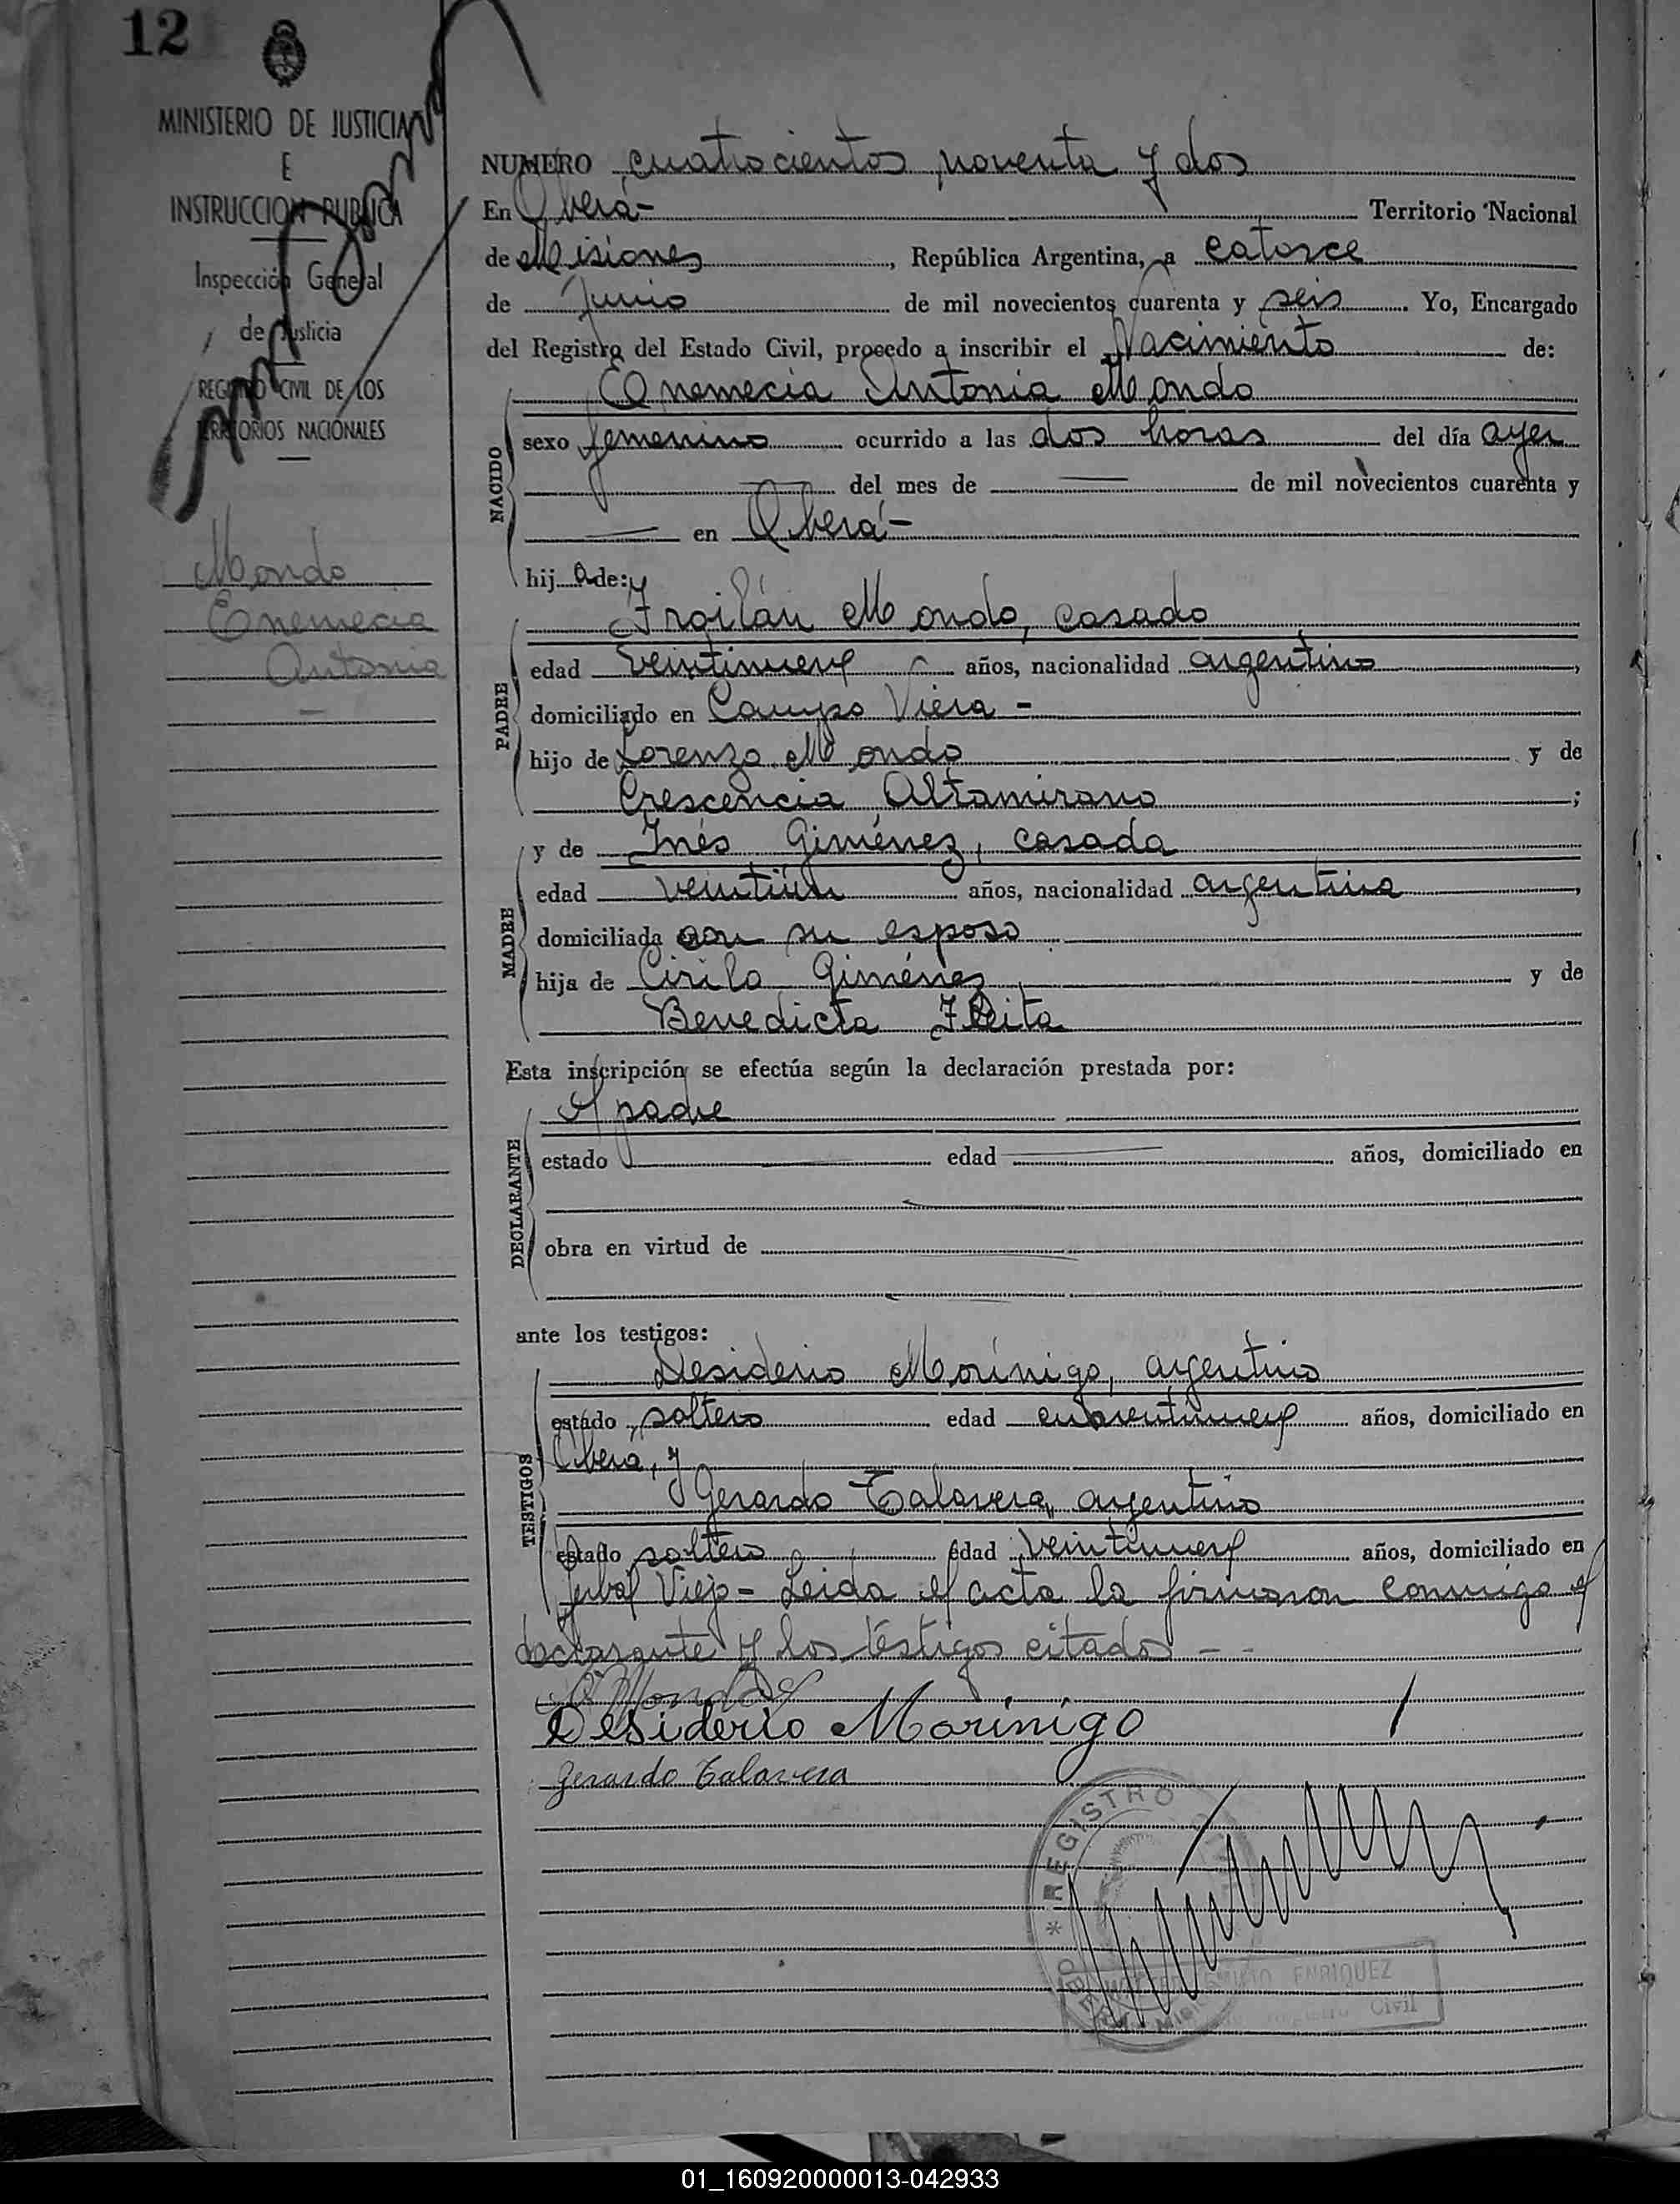 12
MINISTERIO DE JUSTICIA
E
INSTRUCCION PUBLICA
Inspección General
de Justicia
REGISTRO CIVIL DE LOS
TERRITORIOS NACIONALES
Mondo
Enemecia
Antonia
NUMERO cuatrocientos noventa y dos
En Oberá - Territorio Nacional
de Misiones, República Argentina, a catorce
de Junio de mil novecientos cuarenta y seis. Yo, Encargado
del Registro del Estado Civil, procedo a inscribir el Nacimiento de:
NACIDO
Enemecia Antonia Mondo
sexo femenino ocurrido a las dos horas del día ayer
del mes de — de mil novecientos cuarenta y
— en Oberá -
hij a de:
PADRE
Froilán Mondo, casado
edad veintinueve años, nacionalidad argentino,
domiciliado en Campo Viera -
hijo de Lorenzo Mondo y de
Crescencia Altamirano;
MADRE
y de Inés Giménez, casada
edad veintiún años, nacionalidad argentina,
domiciliada con su esposo
hija de Cirilo Giménez y de
Benedicta Fleita
Esta inscripción se efectúa según la declaración prestada por:
DECLARANTE
El padre
estado — edad — años, domiciliado en
obra en virtud de
ante los testigos:
TESTIGOS
Desiderio Morínigo, argentino
estado soltero edad cuarentinueve años, domiciliado en
Oberá, y
Gerardo Talavera, argentino
estado soltero edad veintinueve años, domiciliado en
Yerbal Viejo - Leida el acta la firmaron conmigo el
declarante y los testigos citados - -
Desiderio Morínigo
Gerardo Talavera
REGISTRO
ENRIQUEZ
Civil
01_160920000013-042933